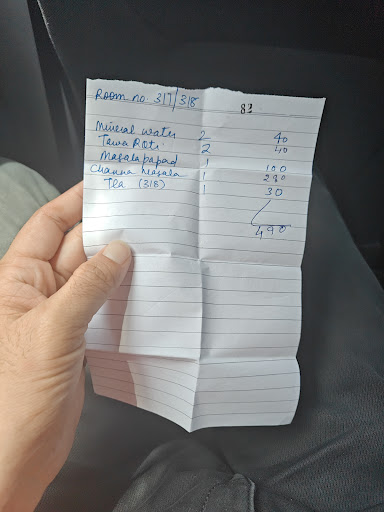 Room no. 317/318
Mineral water 2 40
Tawa Roti 2 40
Masala papad 1 100
Channa Masala 1 280
Tea (318) 1 30
490